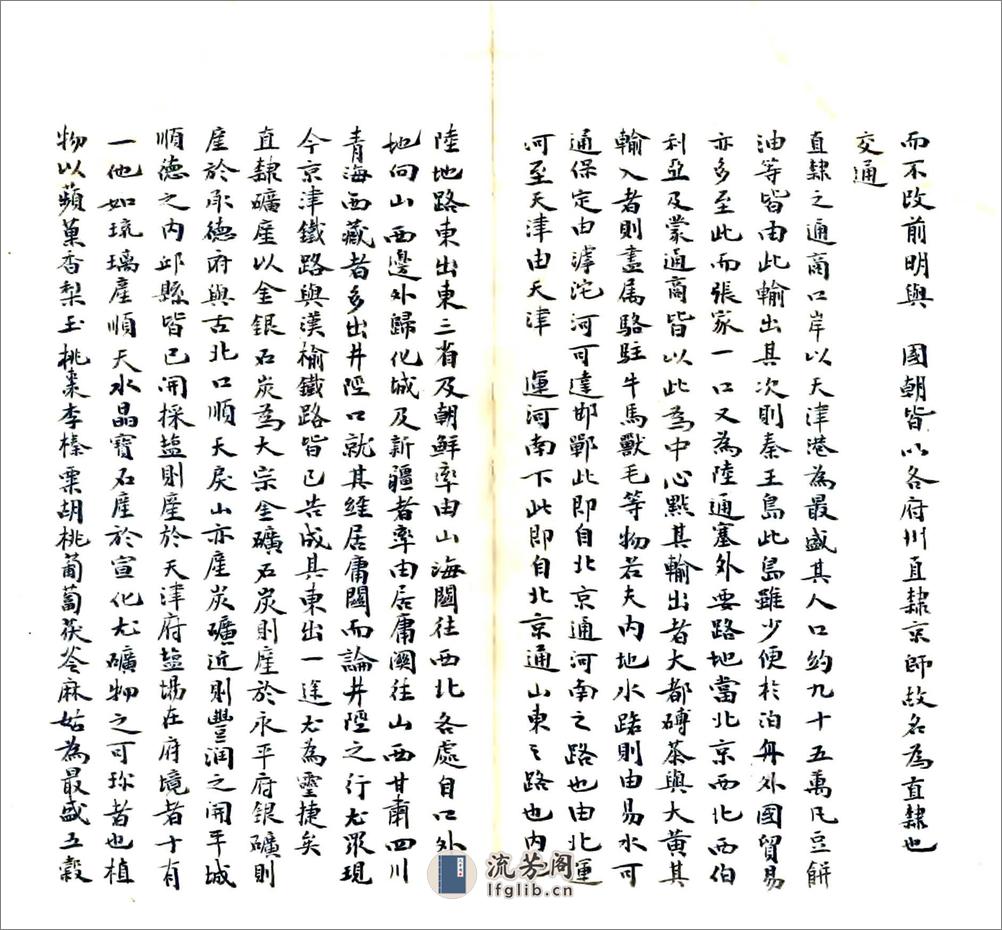 而不改前明與　國朝皆以各府州直隸京師故名為直隸也
交通
直隸之通商口岸以天津港為最盛其人口約九十五萬凡豆餅
油等皆由此輸出其次則秦王島此島雖少便於泊舟外國貿易
亦多至此而張家一口又為陸通塞外要路地當北京西北西伯
利亞及蒙通商皆以此為中心點其輸出者大都磚茶與大黃其
輸入者則盡属駱駐牛馬獸毛等物若夫內地水路則由易水可
通保定由滹沱河可達邯鄲此即自北京通河南之路也由北運
河至天津由天津　運河南下此即自北京通山東之路也內
陸地路東出東三省及朝鮮率由山海關往西北各處自口外
地向山西邊外歸化城及新疆者率由居庸關往山西甘肅四川
青海西藏者多出井陘口就其維居庸關而論井陘之行尤眾現
今京津鐵路與漢榆鐵路皆已告成其東出一途尤為靈捷矣
直隸礦產以金銀石炭為大宗金礦石炭則產於永平府銀礦則
產於承德府與古北口順天戾山亦產炭礦近則豐润之開平城
順德之內邱縣皆已開採盐則產於天津府盐場在府境者十有
一他如琉璃產順天水晶寶石產於宣化尤礦物之可珎者也植
物以蘋菓香梨玉桃棗李榛栗胡桃葡萄茯苓麻姑為最盛五穀
流芳阁
lfglib.cn